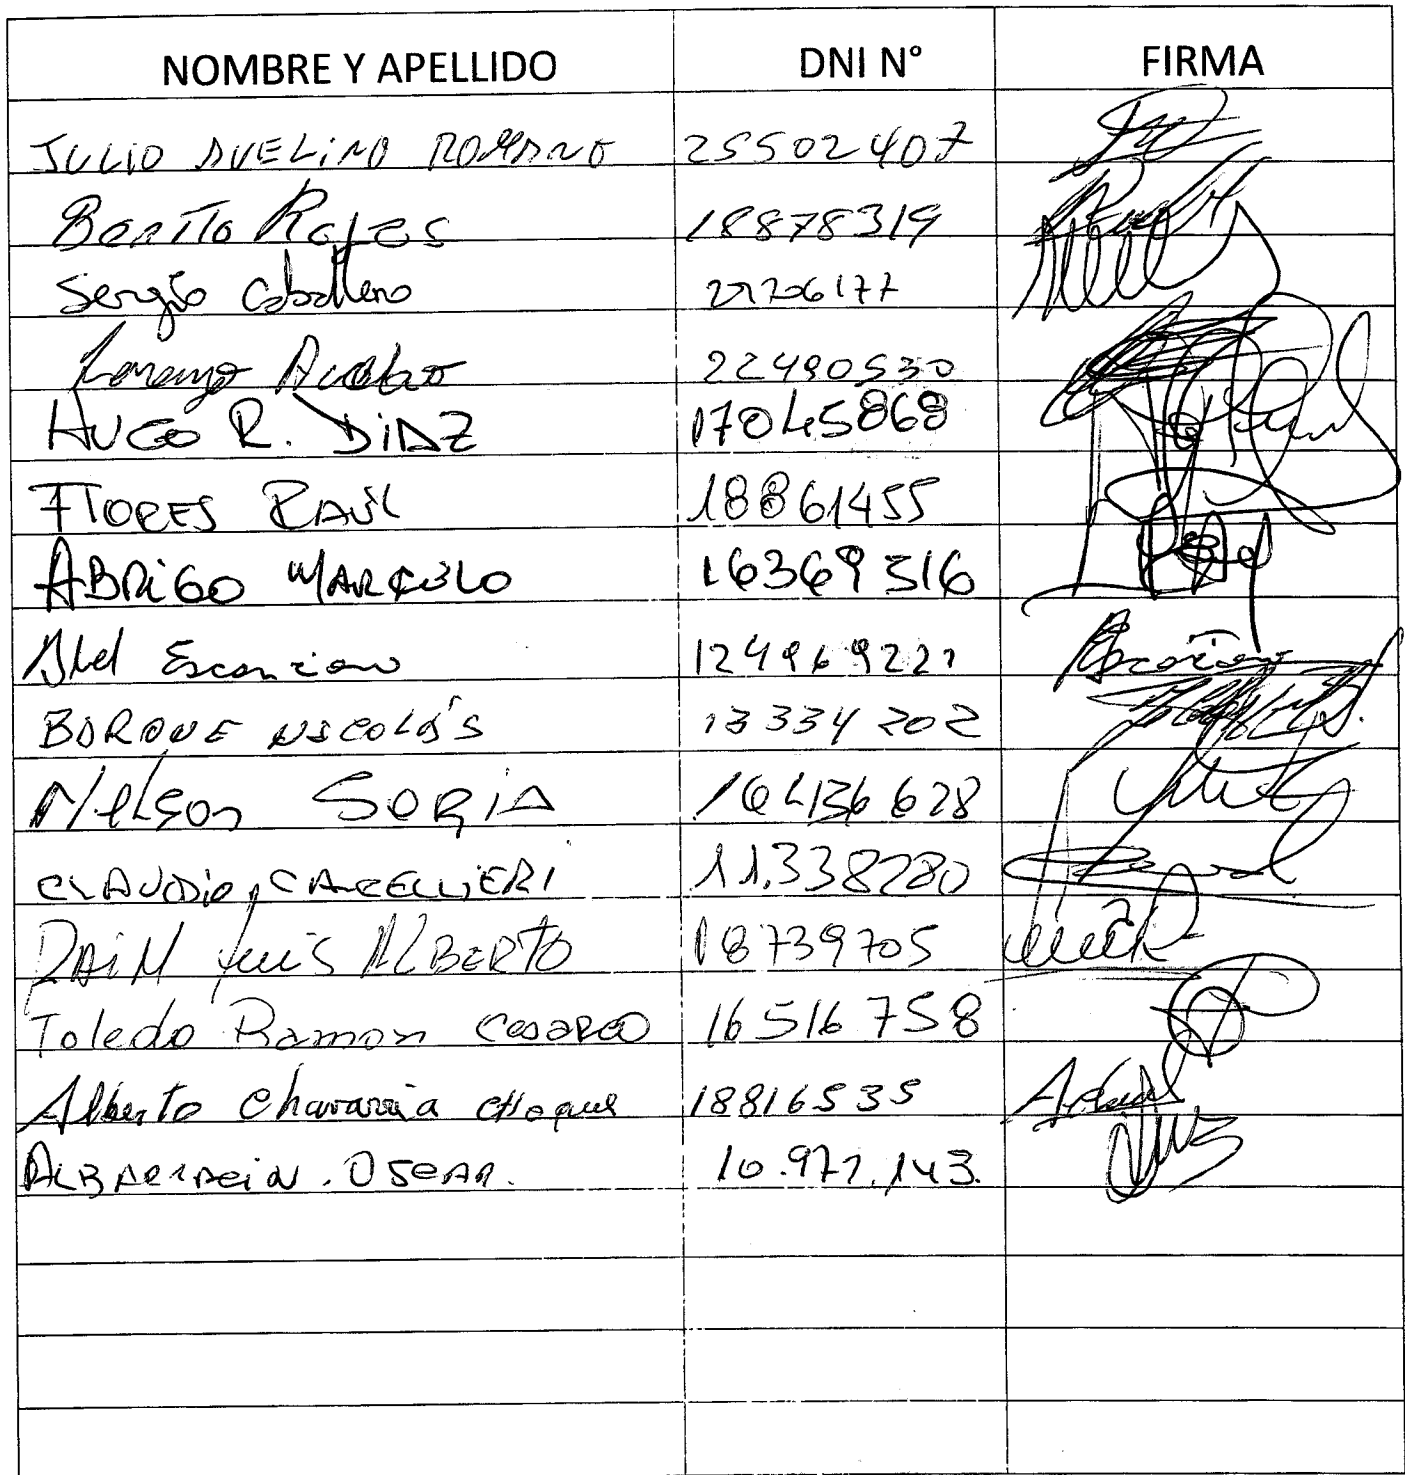 NOMBRE Y APELLIDO DNI N° FIRMA
JULIO AVELINO ROMANO 25502407
Benito Rojes 18878319
Sergio Caballero
Lorenzo 22490530
HUGO R. DIAZ 17045868
FLORES RAÚL 18861455
ABRIGO MARCELO 16369516
Abel
NICOLÁS 13334202
Nelson SORIA 16436628
CLAUDIO CANCELLIERI 11.338280
LUIS ALBERTO 18739705
Toledo Ramon 16516758
Alberto Chavarria Choque 18816535
ALBARRACIN. OSCAR. 10.977.143.